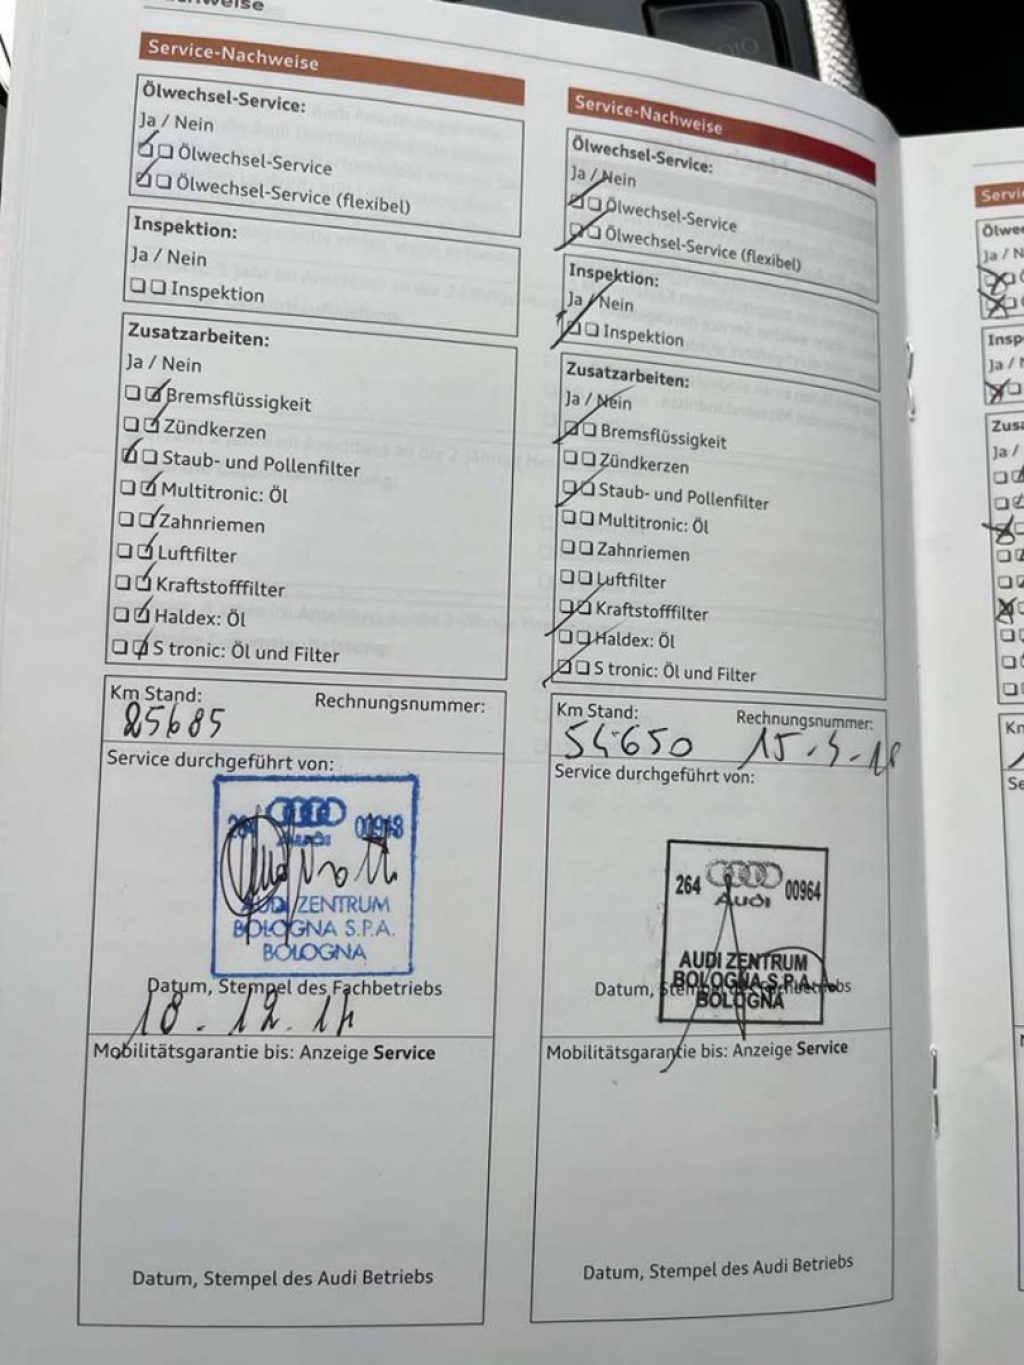 Service-Nachweise
Ölwechsel-Service:
Ja / Nein
Ölwechsel-Service
Ölwechsel-Service (flexibel)
Inspektion:
Ja / Nein
Inspektion
Zusatzarbeiten:
Ja / Nein
Bremsflüssigkeit
Zündkerzen
Staub- und Pollenfilter
Multitronic: Öl
Zahnriemen
Luftfilter
Kraftstofffilter
Haldex: Öl
S tronic: Öl und Filter
Km Stand:
Rechnungsnummer:
25685
Service durchgeführt von:
Audi
AUDI ZENTRUM
BOLOGNA S.P.A.
BOLOGNA
Datum, Stempel des Fachbetriebs
18.12.14
Mobilitätsgarantie bis: Anzeige Service
Datum, Stempel des Audi Betriebs
Service-Nachweise
Ölwechsel-Service:
Ja / Nein
Ölwechsel-Service
Ölwechsel-Service (flexibel)
Inspektion:
Ja / Nein
Inspektion
Zusatzarbeiten:
Ja / Nein
Bremsflüssigkeit
Zündkerzen
Staub- und Pollenfilter
Multitronic: Öl
Zahnriemen
Luftfilter
Kraftstofffilter
Haldex: Öl
S tronic: Öl und Filter
Km Stand:
Rechnungsnummer:
54650
Service durchgeführt von:
264 00964
Audi
AUDI ZENTRUM
BOLOGNA S.P.A.
BOLOGNA
Datum, Stempel des Fachbetriebs
Mobilitätsgarantie bis: Anzeige Service
Datum, Stempel des Audi Betriebs